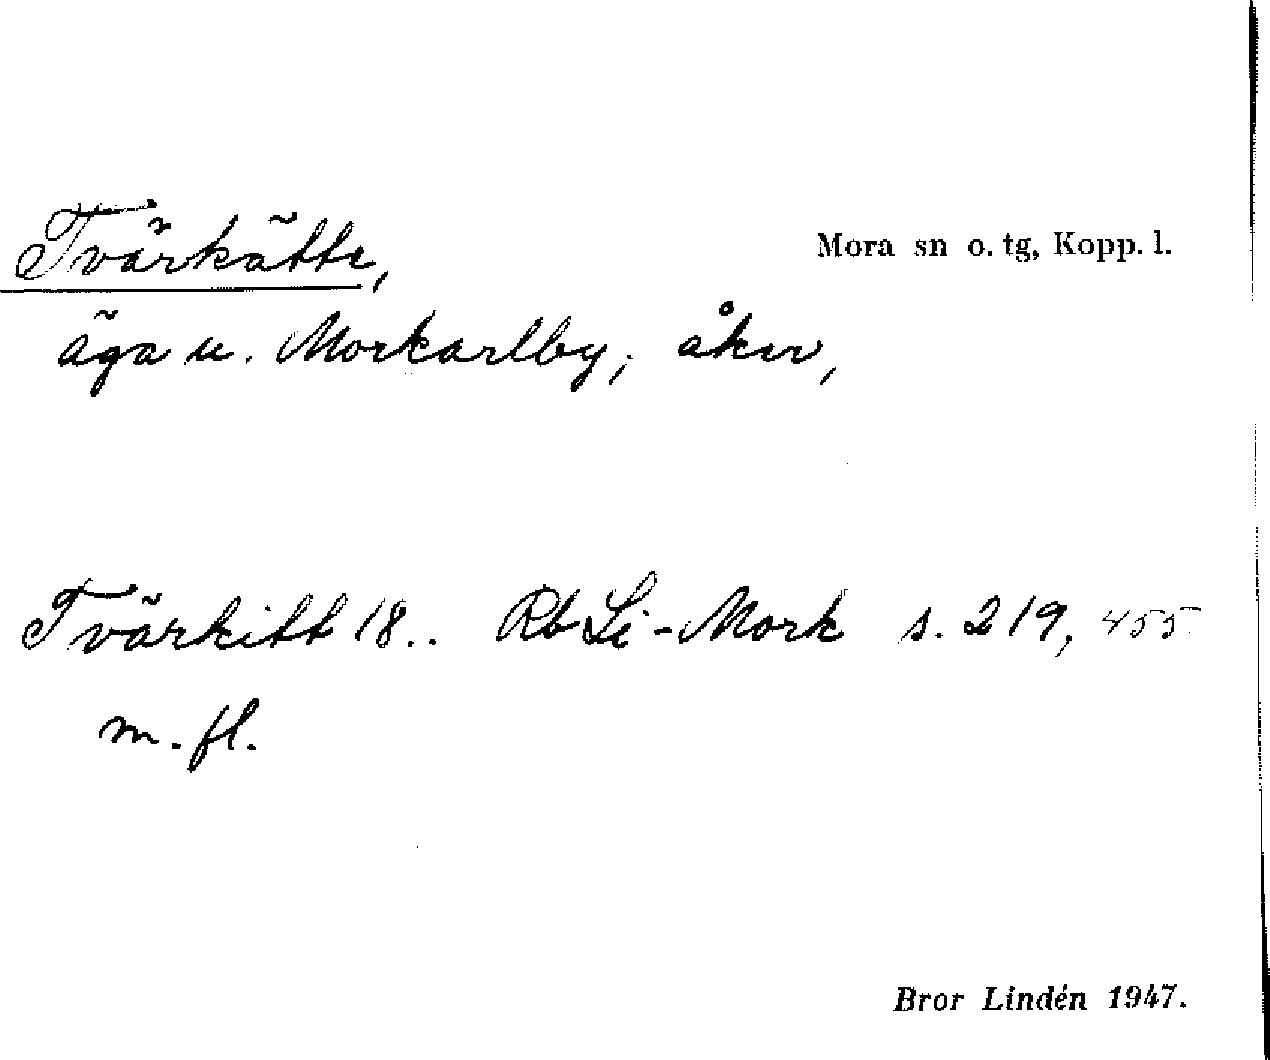 Tvärkätte,
Mora sn o. tg, Kopp. l.
äga u. Morkarlby; åker,
Tvärkitt 18.. Rb Li-Mork s. 219, 455
m. fl.
Bror Lindén 1947.